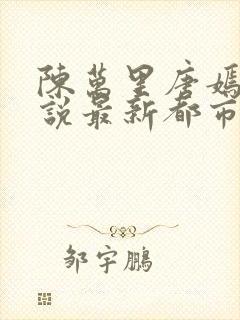 陳萬里唐嫣
說最新都市
邹宇鵬